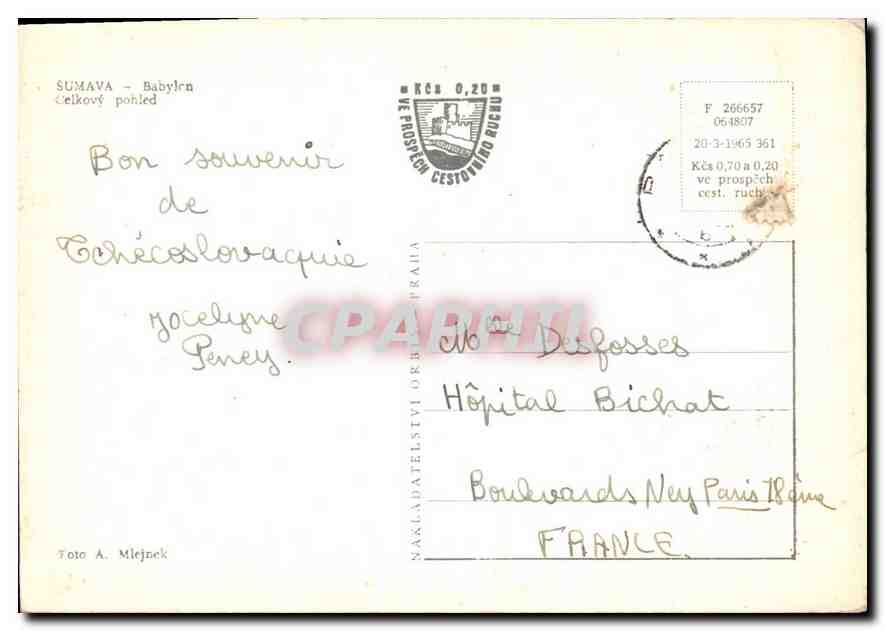 ŠUMAVA - Babylon
Celkový pohled
Bon souvenir
de
Tchécoslovaquie
Jocelyne
Peney.
Foto A. Mlejnek
Kčs 0,20
VE PROSPĚCH CESTOVNÍHO RUCHU
NAKLADATELSTVÍ ORBIS PRAHA
F 266657
064807
20-3-1965 361
Kčs 0,70 a 0,20
ve prospěch
cest. ruch
Mlle Desfosses
Hôpital Bichat
Boulevards Ney Paris 18ème
FRANCE.
CPARHTI